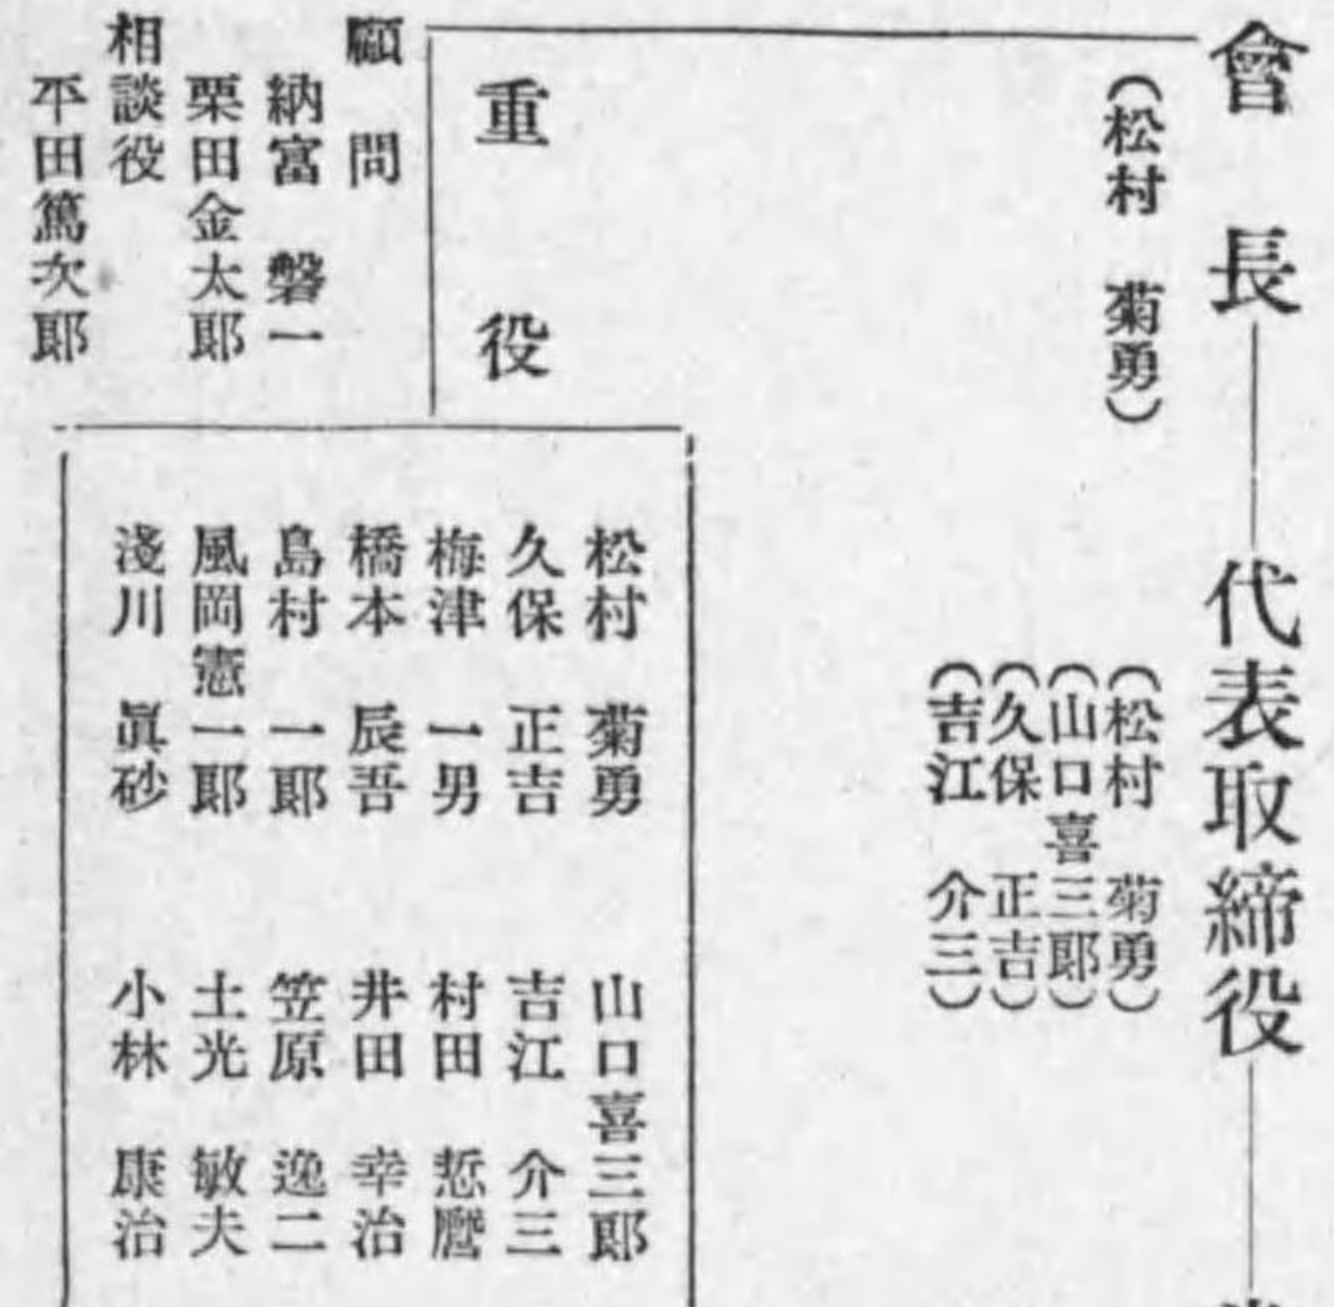 會長
(松村 菊勇)
代表取締役
(松村 菊勇)
(山口喜三郎)
(久保 正吉)
(吉江 介三)
重役
松村 菊勇
久保 正吉
梅津 一男
橋本 辰吾
島村 一郎
風岡憲一郎
淺川 眞砂
山口喜三郎
吉江 介三
村田 悊麿
井田 幸治
笠原 逸二
土光 敏夫
小林 康治
顧問
納富 磐一
栗田金太郎
相談役
平田篤次郎